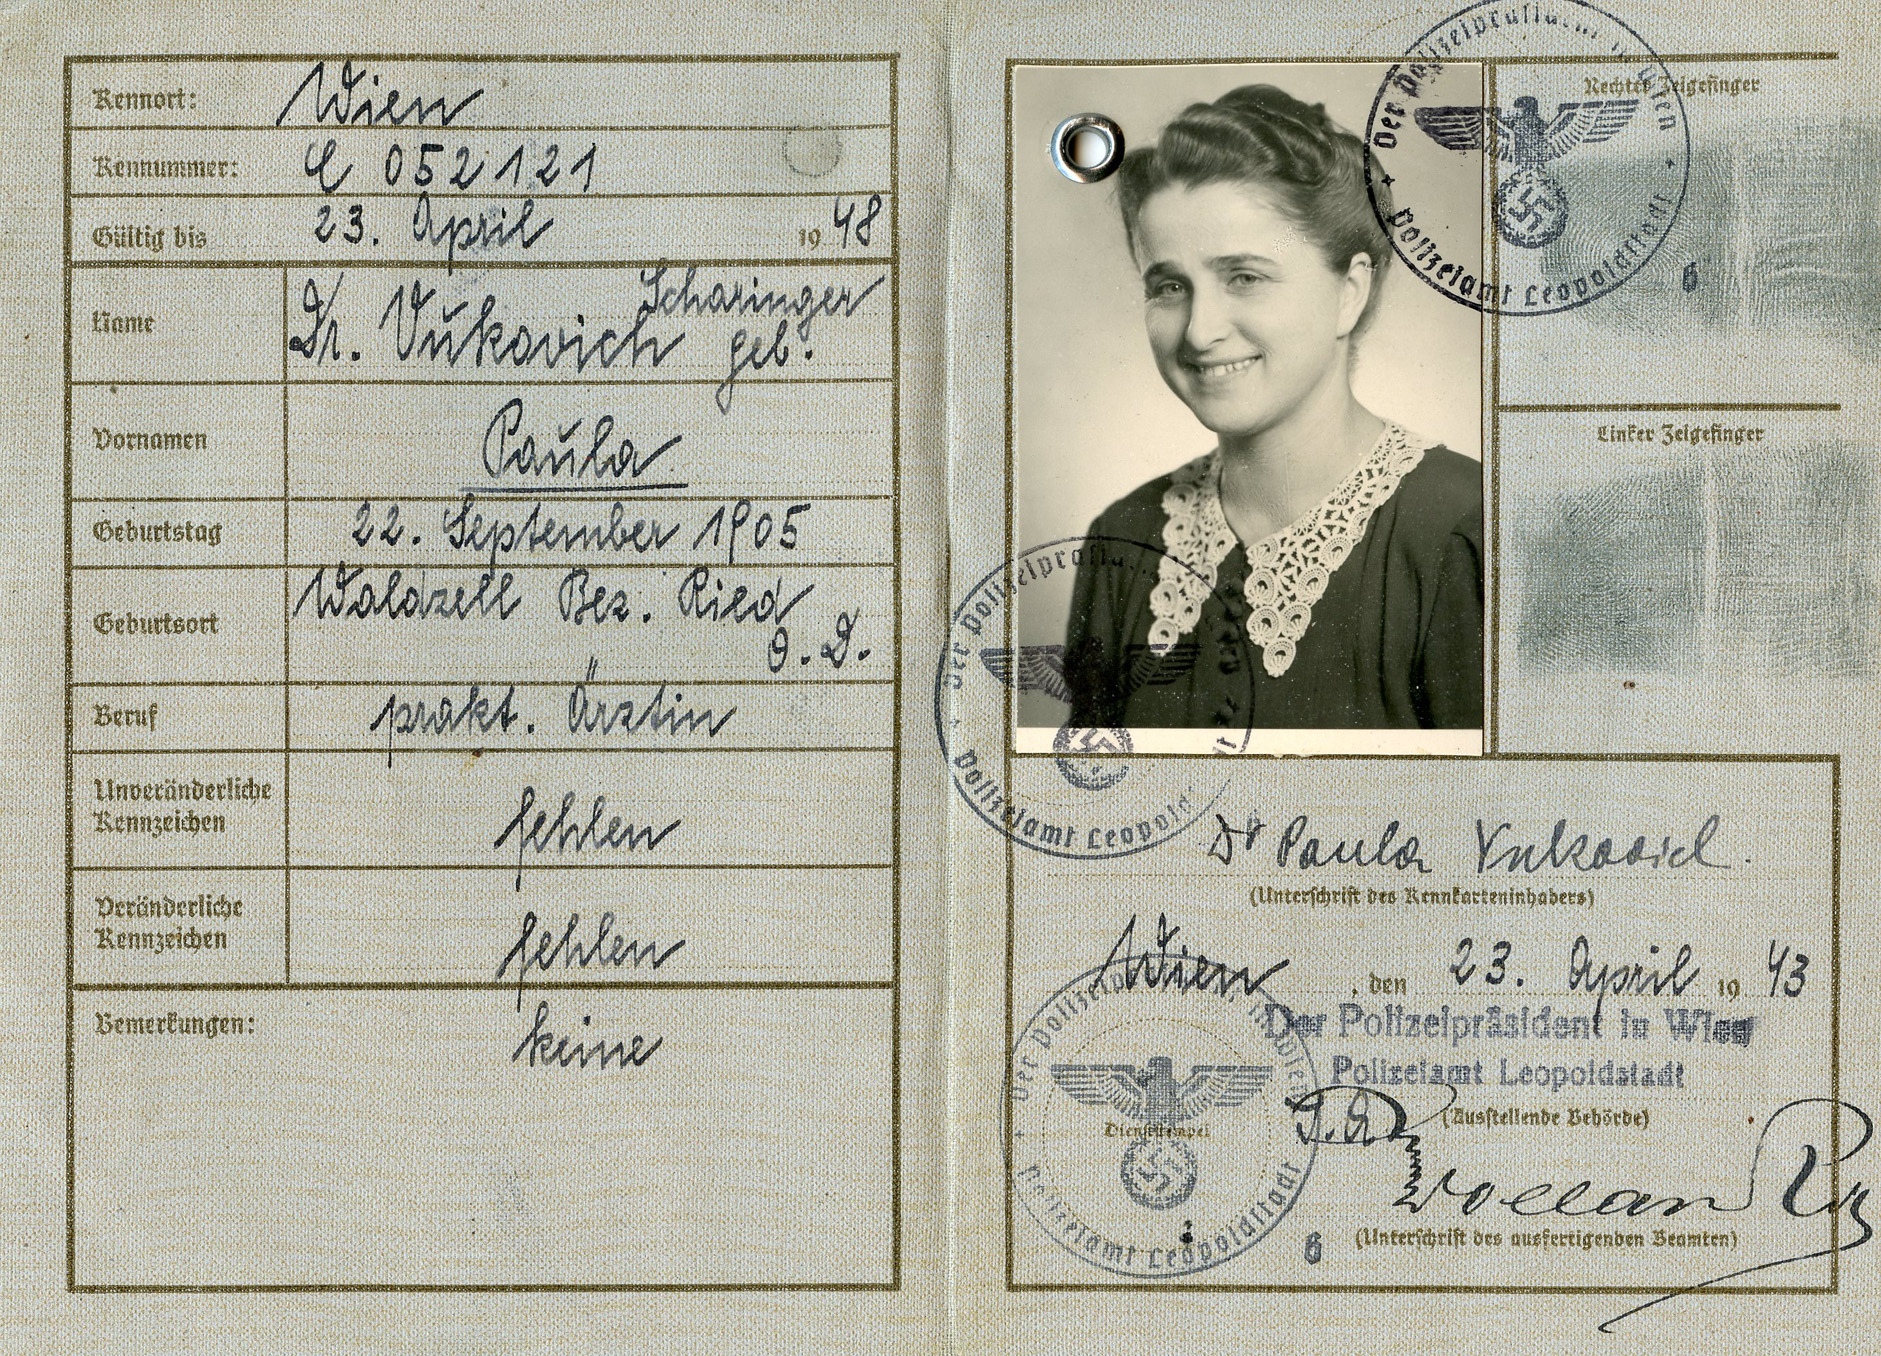 Kennort: Wien
Kennummer: C 052121
Gültig bis 23. April 1948
Scharinger
Name Dr. Vukovich geb.
Vornamen Paula
Geburtstag 22. September 1905
Geburtsort Waldzell Bez. Ried
O. D.
Beruf prakt. Ärztin
Unveränderliche
Kennzeichen fehlen
Veränderliche
Kennzeichen fehlen
Bemerkungen: keine
Der Polizeipräsident in Wien
Polizeiamt Leopoldstadt
Rechter Zeigefinger
6
Linker Zeigefinger
Der Polizeipräsident
Polizeiamt Leopoldstadt
Dr Paula Vukovich.
(Unterschrift des Kennkarteninhabers)
Wien, den 23. April 1943
Der Polizeipräsident in Wien
Polizeiamt Leopoldstadt
(Ausstellende Behörde)
Der Polizeipräsident in Wien
Dienststempel
Polizeiamt Leopoldstadt
6
(Unterschrift des ausfertigenden Beamten)